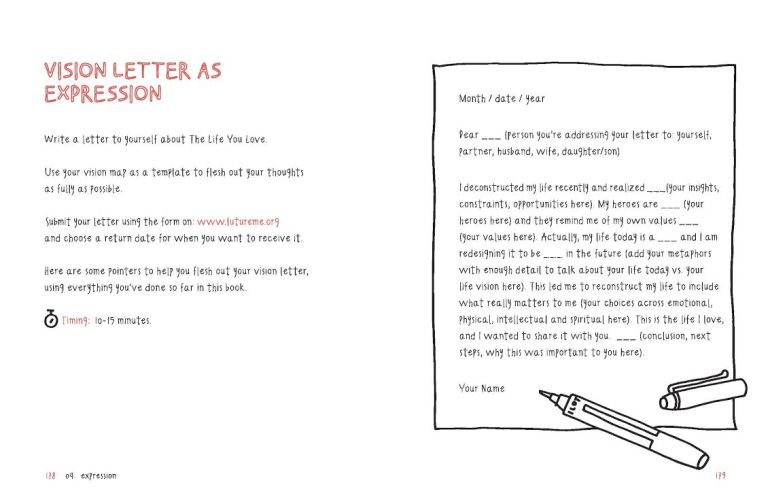 VISION LETTER AS
EXPRESSION
Write a letter to yourself about The Life You Love.
Use your vision map as a template to flesh out your thoughts
as fully as possible.
Submit your letter using the form on: www.futureme.org
and choose a return date for when you want to receive it.
Here are some pointers to help you flesh out your vision letter,
using everything you've done so far in this book.
Timing: 10-15 minutes.
178 04. expression
Month / date / year
Dear ___ (person you're addressing your letter to: yourself,
partner, husband, wife, daughter/son)
I deconstructed my life recently and realized ___(your insights,
constraints, opportunities here). My heroes are ___ (your
heroes here) and they remind me of my own values ___
(your values here). Actually, my life today is a ___ and I am
redesigning it to be ___ in the future (add your metaphors
with enough detail to talk about your life today vs. your
life vision here). This led me to reconstruct my life to include
what really matters to me (your choices across emotional,
physical, intellectual and spiritual here). This is the life I love,
and I wanted to share it with you. ___ (conclusion, next
steps, why this was important to you here).
Your Name
179